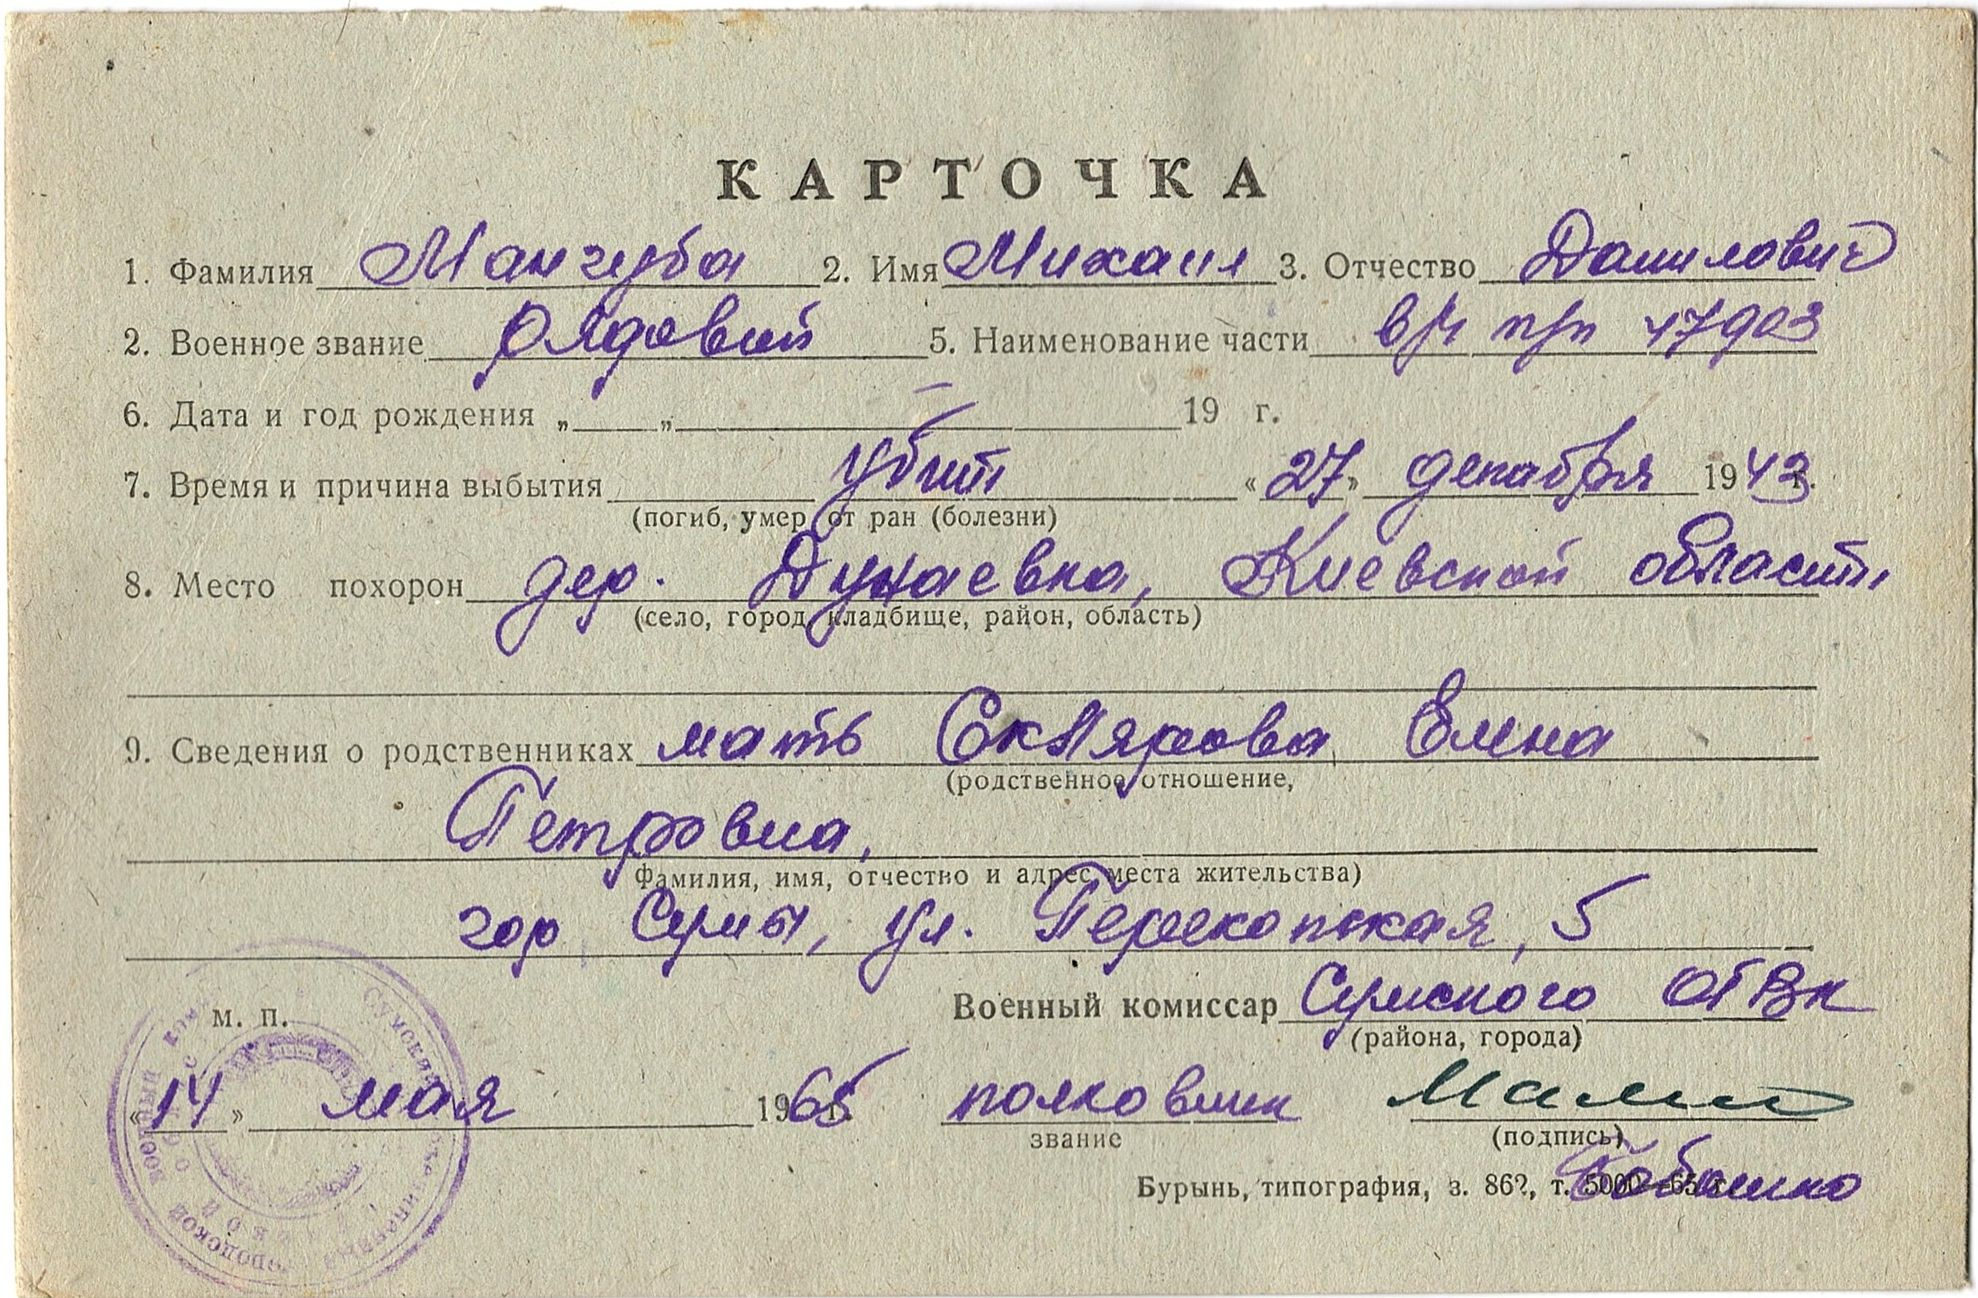 КАРТОЧКА
1. Фамилия Мангуба 2. Имя Михаил 3. Отчество Данилович
2. Военное звание рядовой 5. Наименование части в/ч п/п 47903
6. Дата и год рождения „ „ — 19 г.
7. Время и причина выбытия убит «27» декабря 1943 г.
(погиб, умер от ран (болезни)
8. Место похорон дер. Дунаевка, Киевской области
(село, город, кладбище, район, область)
9. Сведения о родственниках мать Склярова Елена
(родственное отношение,
Петровна,
фамилия, имя, отчество и адрес места жительства)
гор Сумы, ул. Перекопская, 5
м. п.
Военный комиссар Сумского ОГВК
(района, города)
«14» мая 1965 г. полковник
звание (подпись)
Бурынь, типография, з. 862, т. 5000—65 г.